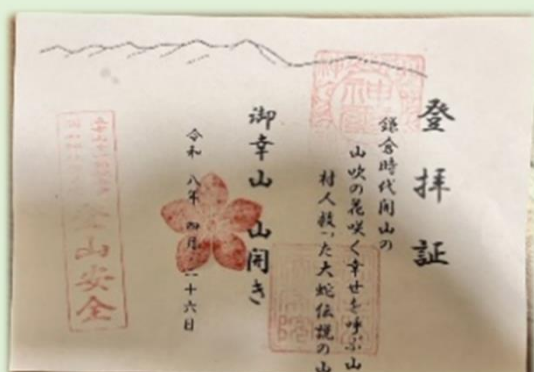 登拝証
鎌倉時代開山の
山吹の花咲く幸せを呼ぶ山
村人救った大蛇伝説の山
御幸山 山開き
令和 八年 四月 十六日
山安全